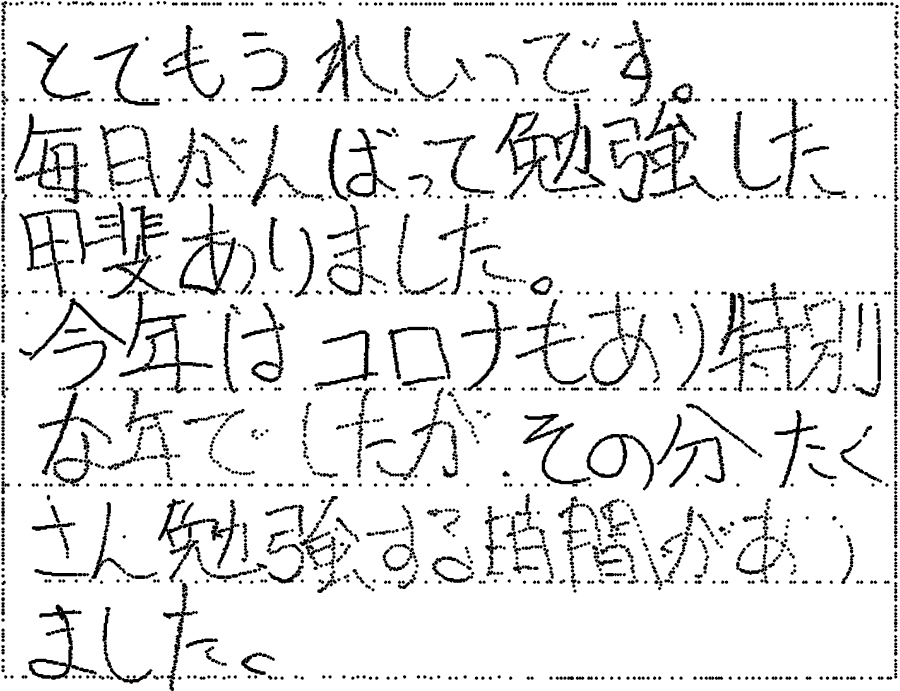 とてもうれしいです。
毎日がんばって勉強した
甲斐ありました。
今年はコロナもあり特別
な年でしたが、その分たく
さん勉強する時間があり
ました。